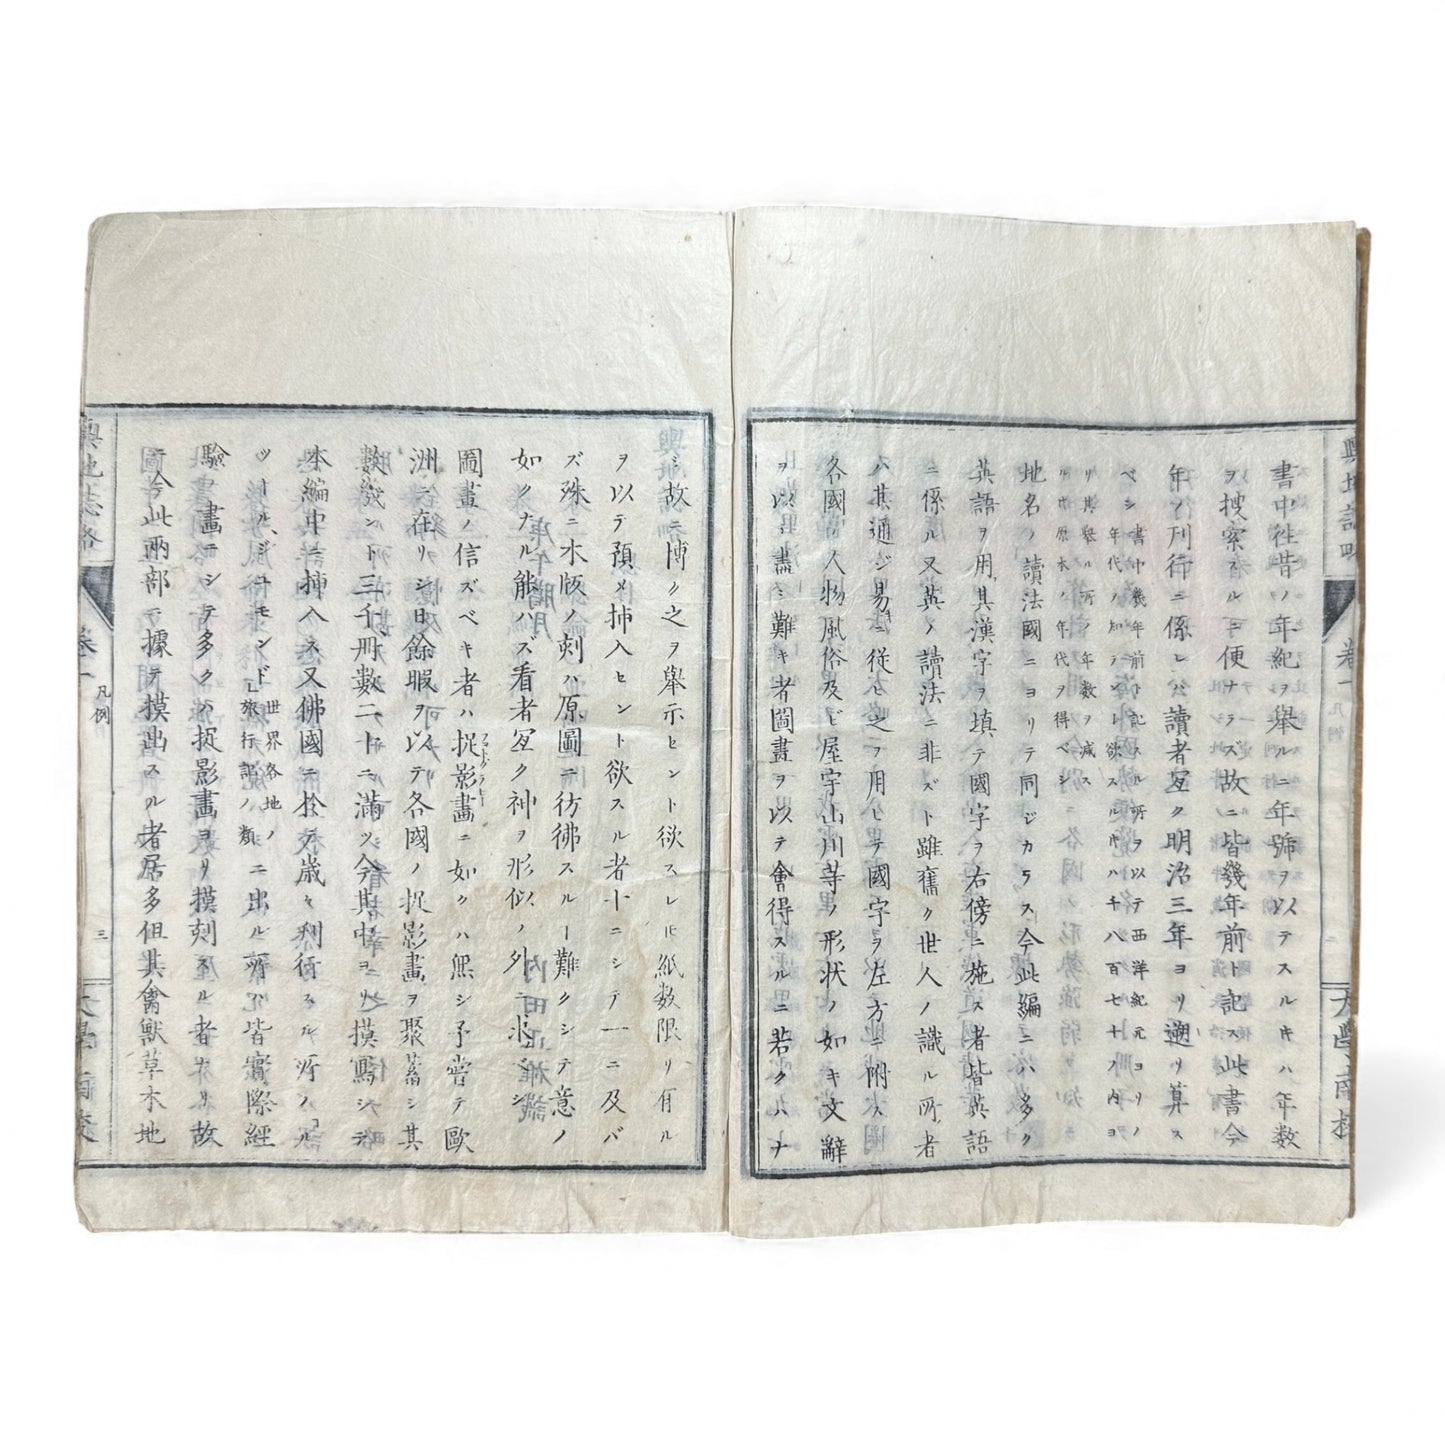 輿地誌略
卷一
凡例
二
大學南校
書中往昔ノ年紀ヲ舉ルニ年號ヲ以テスルキハ年数
ヲ搜索スルニ便ナラズ故ニ皆幾年前ト記ス此書今
年ノ刊行ニ係レバ讀者宜ク明治三年ヨリ遡リ算ス
ベシ
書中幾年前ト記スル所ヲ以テ西洋紀元ヨリノ
年代ヲ知ラント欲スルキハ千八百七十ノ内ヨ
リ其舉ル所ノ年数ヲ減ス
ルキ原本ノ年代ヲ得ベシ
地名ノ讀法國ニヨリテ同ジカラス今此編ニハ多ク
英語ヲ用其漢字ヲ填テ國字ヲ右傍ニ施ス者皆英語
ニ係ル又英ノ讀法ニ非ズト雖舊ク世人ノ識ル所者
ハ其通ジ易キニ從ヒ之ヲ用ヒテ國字ヲ左方ニ附ス
各國ノ人物風俗及ビ屋宇山川等ノ形状ノ如キ文辭
ヲ以テ盡シ難キ者圖畫ヲ以テ會得スルニ若クハナ
シ故ニ博ク之ヲ舉示セント欲スレ𪜈紙数限リ有ル
ヲ以テ預メ挿入セント欲スル者十ニシテ一ニ及バ
ズ殊ニ木版ノ刻ハ原圖ニ彷彿スルヿ難クシテ意ノ
如クナル能ハズ看者宜ク神ヲ形似ノ外ニ求ムベシ
圖畫ノ信ズベキ者ハ捉影畫ニ如クハ無シ予嘗テ歐
洲ニ在リシ日餘暇ヲ以テ各國ノ捉影畫ヲ聚蓄シ其
数殆ント三千冊数二十ニ滿ツ今其中ヨリ摸寫シテ
本編中ニ挿入ス又佛國ニ於テ歳々刊行スル所ノ「ル
ツールジユモンド」
世界各地ノ
旅行記ノ類
ニ出ル所ハ皆實際經
驗ノ畫ニシテ多クハ捉影畫ヨリ摸刻スル者ナリ故
ニ今此両部ニ據テ摸出スル者居多但其禽獸草木地
輿地誌略
卷一
凡例
三
大學南校